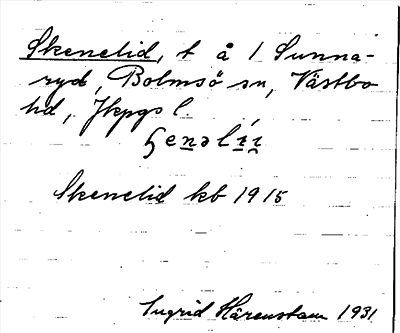 Skenelid, t å 1 Sunna-
ryd, Bolmsö sn, Västbo
hd, Jkpgs l.
Skenelid kb 1915
Ingrid Härenstam 1931